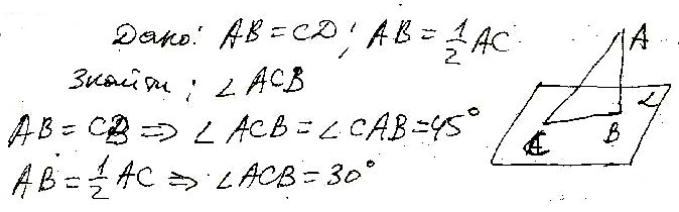 Дано: AB = CD; AB = 1/2 AC
Знайти: ∠ACB
AB = CB ⇒ ∠ACB = ∠CAB = 45°
AB = 1/2 AC ⇒ ∠ACB = 30°
A
α
C B